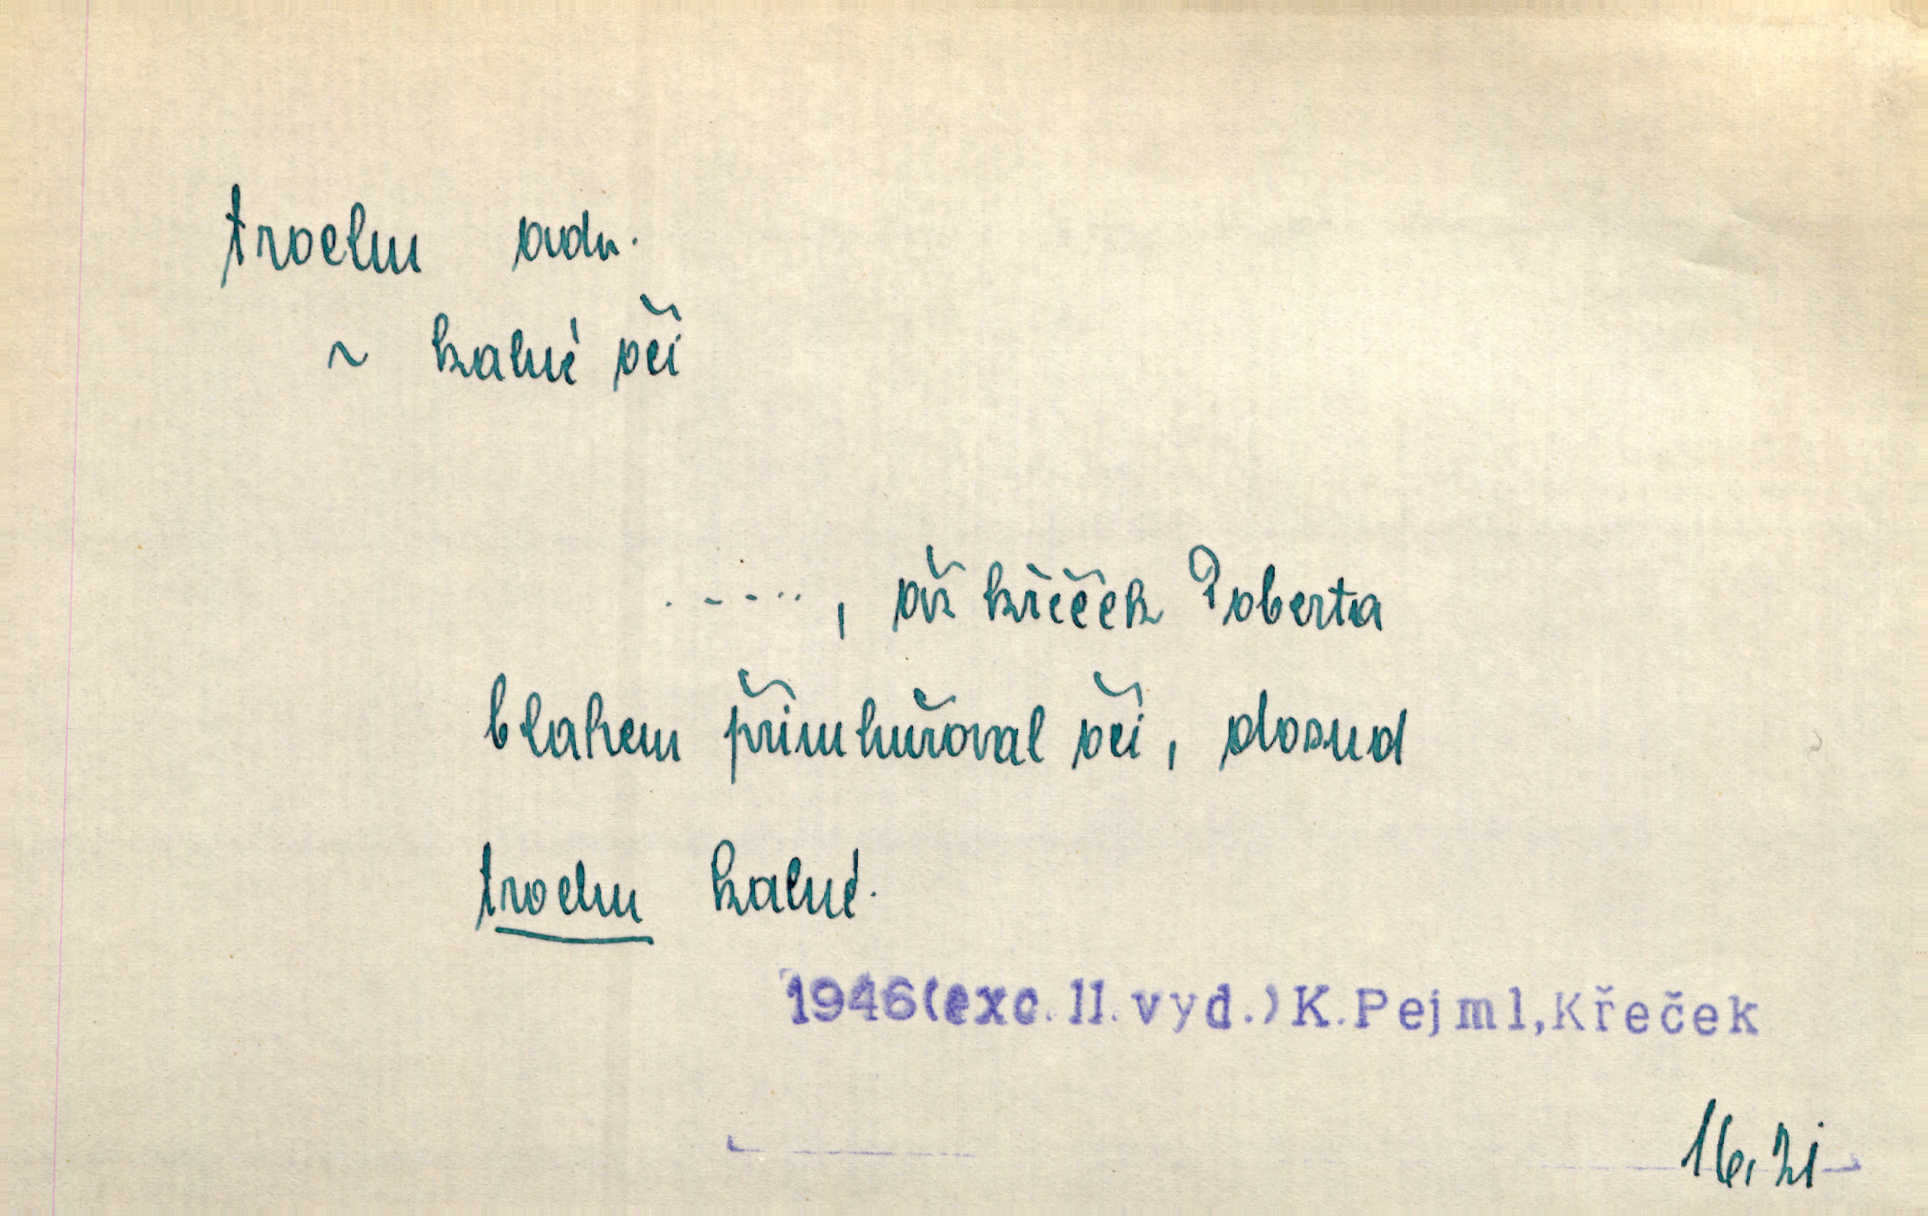 trochu adv.
~ kalné oči
....., až křeček Roberta
blahem přimhuřoval oči, dosud
trochu kalné.
1946(exc.II.vyd.)K.Pejml,Křeček
16,